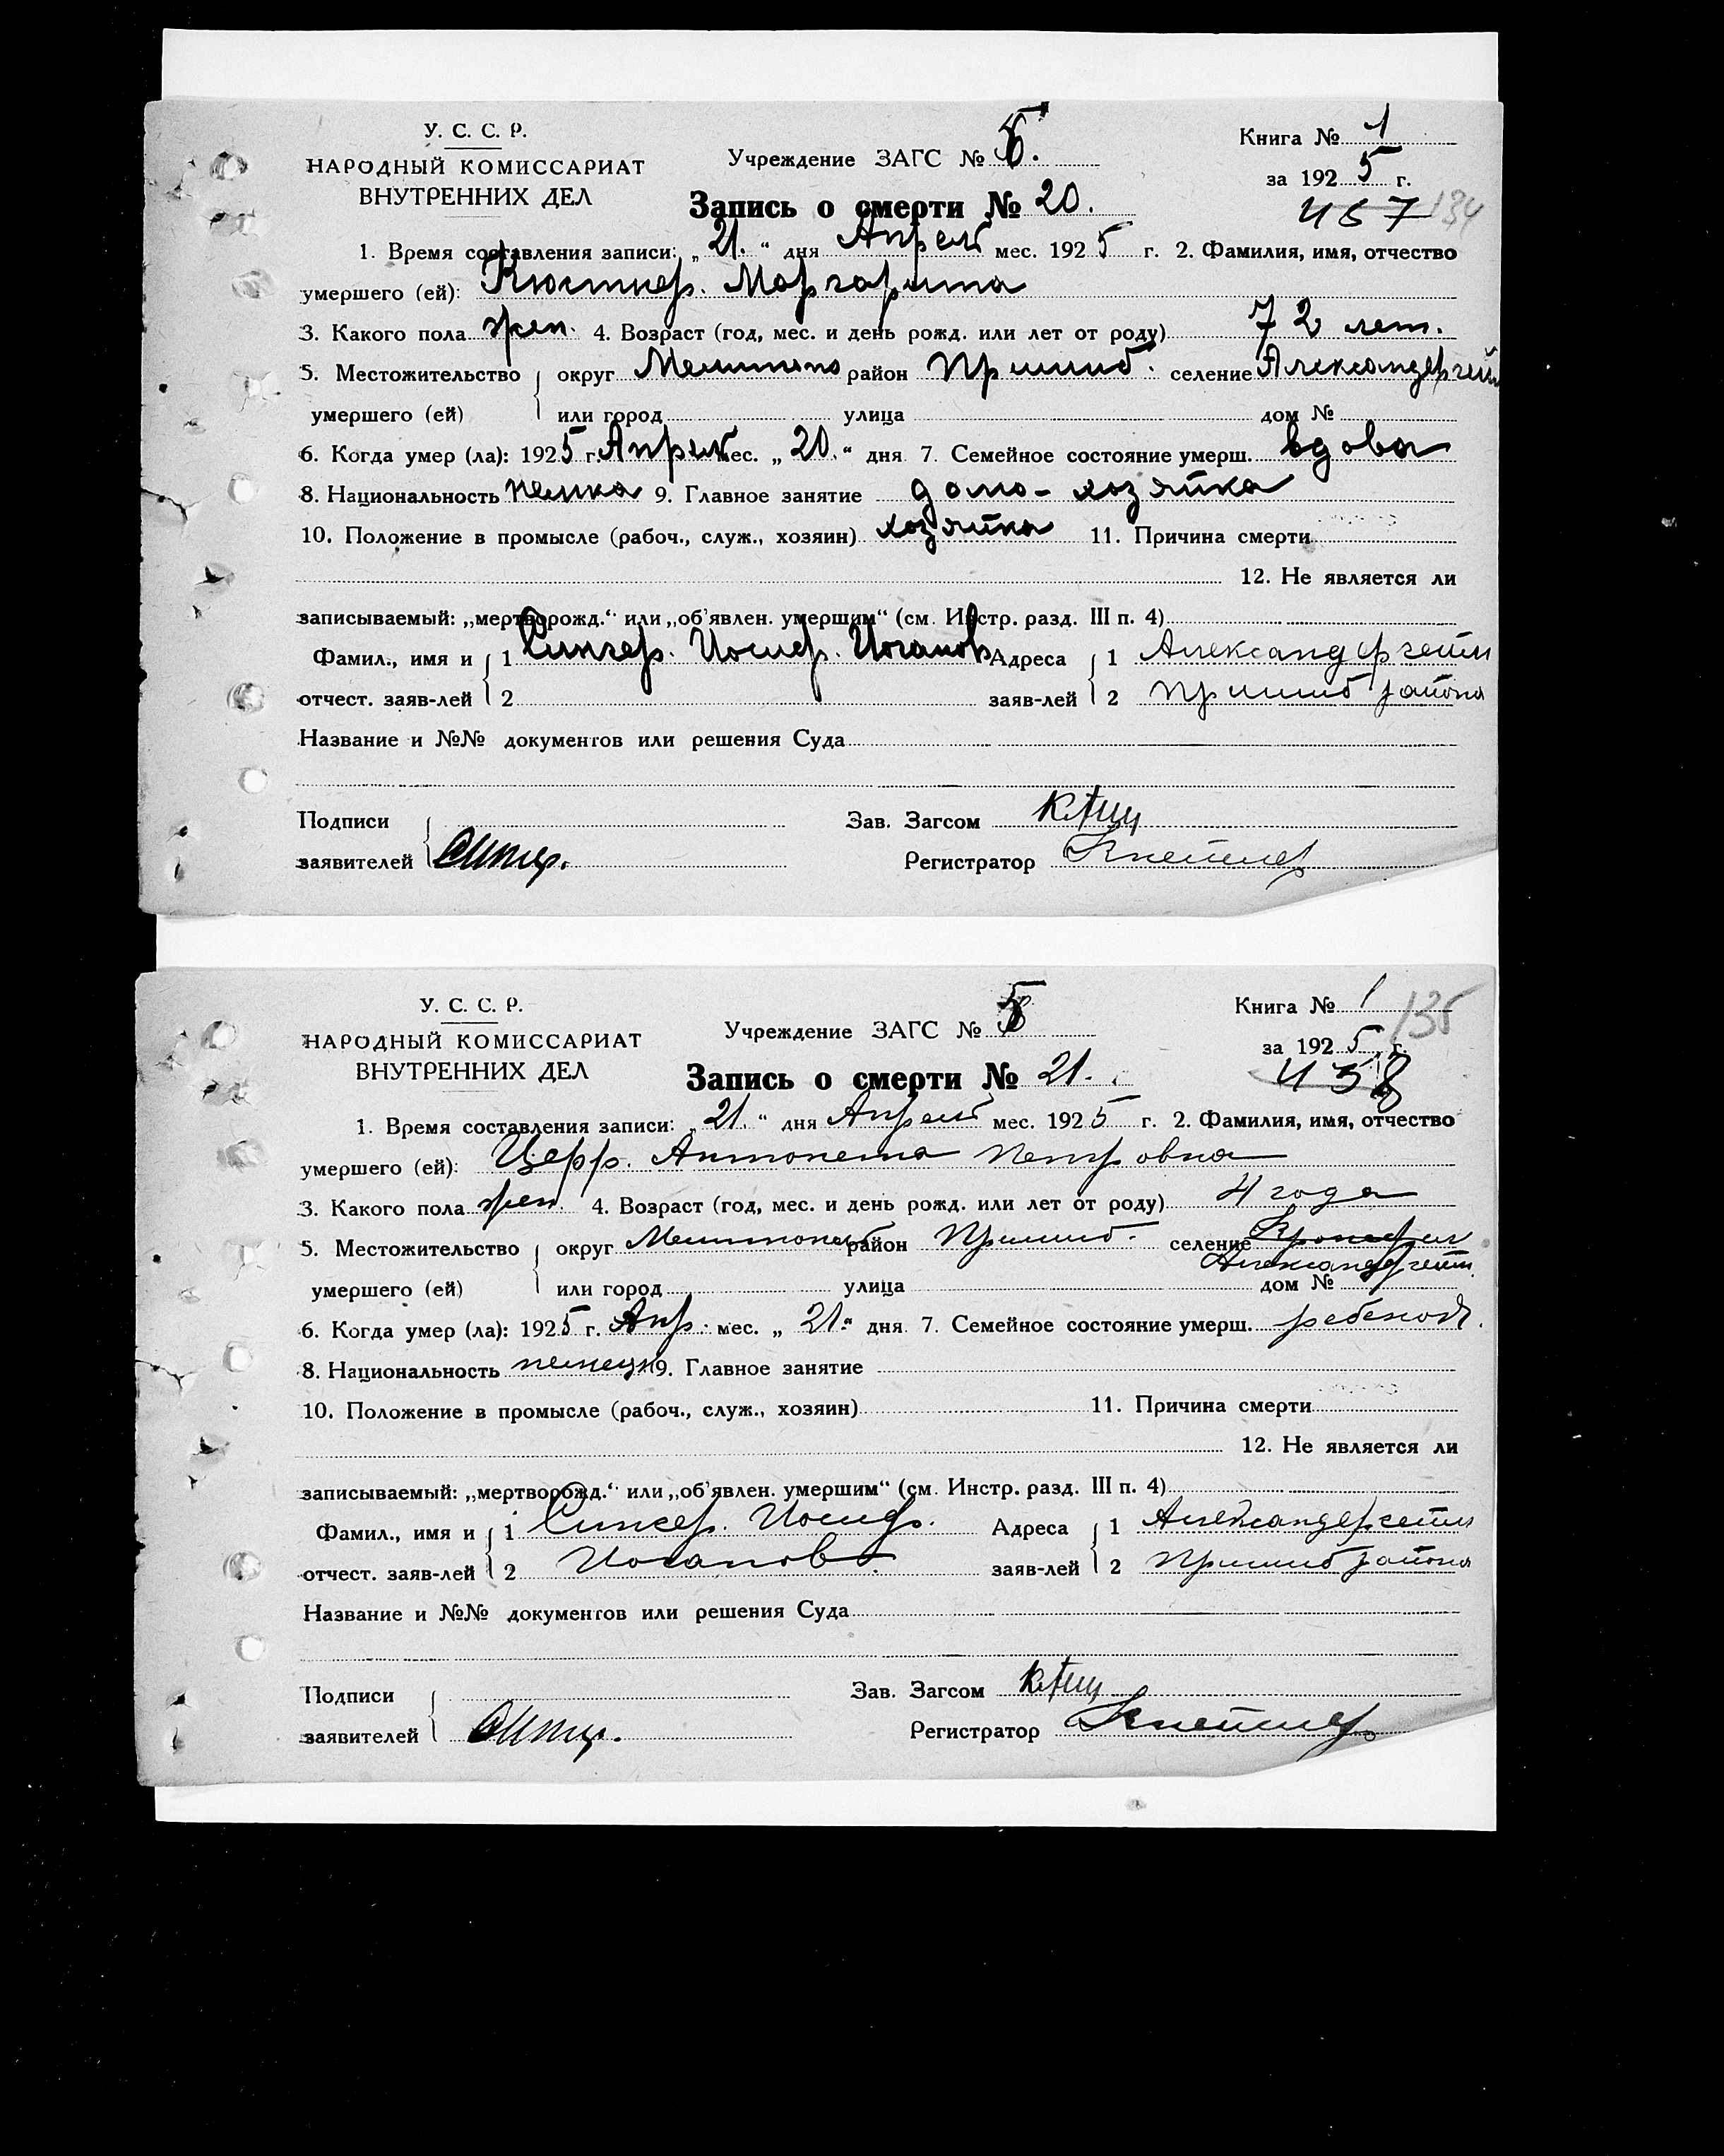 У. С. С. Р.
НАРОДНЫЙ КОМИССАРИАТ
ВНУТРЕННИХ ДЕЛ
Учреждение ЗАГС № 5.
Книга № 1
за 1925 г.
134
Запись о смерти № 20.
1. Время составления записи: „21." дня Апрель мес. 1925 г. 2. Фамилия, имя, отчество
умершего (ей): Кюстнер. Маргарита
3. Какого пола жен. 4. Возраст (год, мес. и день рожд. или лет от роду) 72 лет.
5. Местожительство округ Мелитопо район Пришиб. селение Александергейм
умершего (ей) или город улица дом №
6. Когда умер (ла): 1925 г. Апрель мес. „20." дня 7. Семейное состояние умерш. вдова
8. Национальность немка 9. Главное занятие домо-хозяйка
10. Положение в промысле (рабоч., служ., хозяин) хозяйка 11. Причина смерти
12. Не является ли
записываемый: „мертворожд." или „об'явлен. умершим" (см. Инстр. разд. III п. 4)
Фамил., имя и 1 Сингер. Иосиф. Иоганов Адреса 1 Александергейм
отчест. заяв-лей 2 заяв-лей 2 Пришиб района
Название и №№ документов или решения Суда
Подписи Зав. Загсом
заявителей Регистратор
У. С. С. Р.
НАРОДНЫЙ КОМИССАРИАТ
ВНУТРЕННИХ ДЕЛ
Учреждение ЗАГС № 5
Книга № 1
135
за 1925 г.
Запись о смерти № 21.
458
1. Время составления записи: „21." дня Апрель мес. 1925 г. 2. Фамилия, имя, отчество
умершего (ей): Церр. Антонета Петровна
3. Какого пола жен. 4. Возраст (год, мес. и день рожд. или лет от роду) 4 года
5. Местожительство округ Мелитополь район Пришиб. селение
Александергейм.
умершего (ей) или город улица дом №
6. Когда умер (ла): 1925 г. Апр. мес. „21." дня 7. Семейное состояние умерш. ребенок.
8. Национальность 9. Главное занятие
10. Положение в промысле (рабоч., служ., хозяин) 11. Причина смерти
12. Не является ли
записываемый: „мертворожд." или „об'явлен. умершим" (см. Инстр. разд. III п. 4)
Фамил., имя и 1 Сингер. Иосиф. Адреса 1 Александергейм
отчест. заяв-лей 2 Иоганов. заяв-лей 2 Пришиб района
Название и №№ документов или решения Суда
Подписи Зав. Загсом
заявителей Регистратор